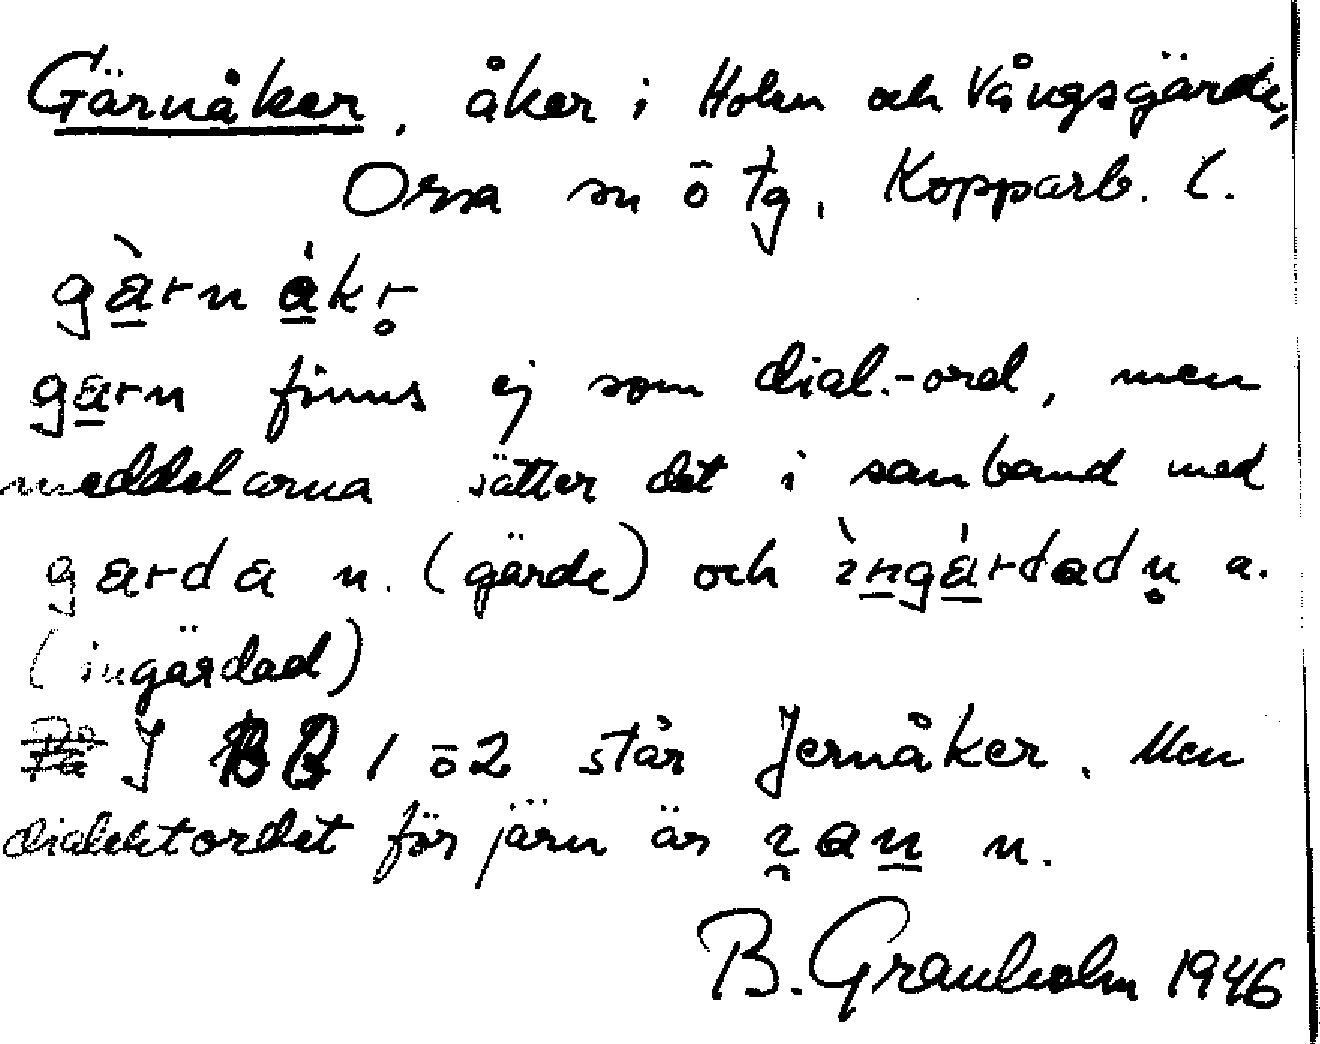 Gärnåker, åker i Holen och Vångsgärde,
Orsa sn o tg, Kopparb. l.
gàrnákr̥
garn finns ej som dial.-ord, men
meddelarna sätter det i samband med
garda n. (gärde) och ìngárdadn̥ a.
(ingärdad)
I 1 o 2 står Jernåker. Men
dialektordet för järn är n.
B. Granholm 1946